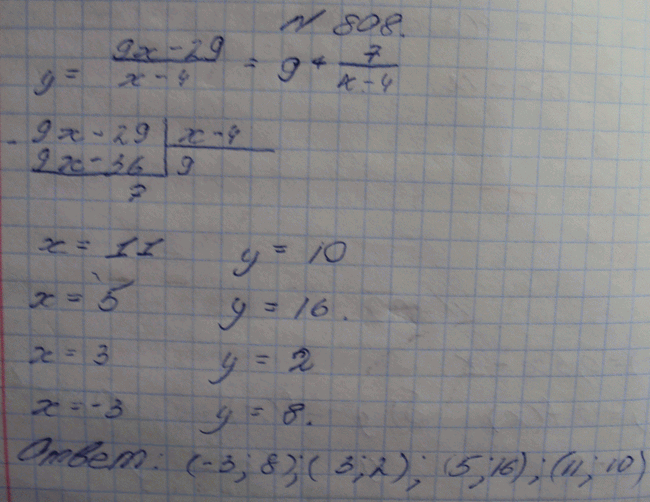 N 808.
y = (9x - 29)/(x - 4) = 9 + 7/(x - 4)
- 9x - 29 | x - 4
9x - 36 | 9
7
x = 11 y = 10
x = 5 y = 16.
x = 3 y = 2
x = -3 y = 8.
Ответ: (-3; 8); (3; 2); (5; 16); (11; 10)